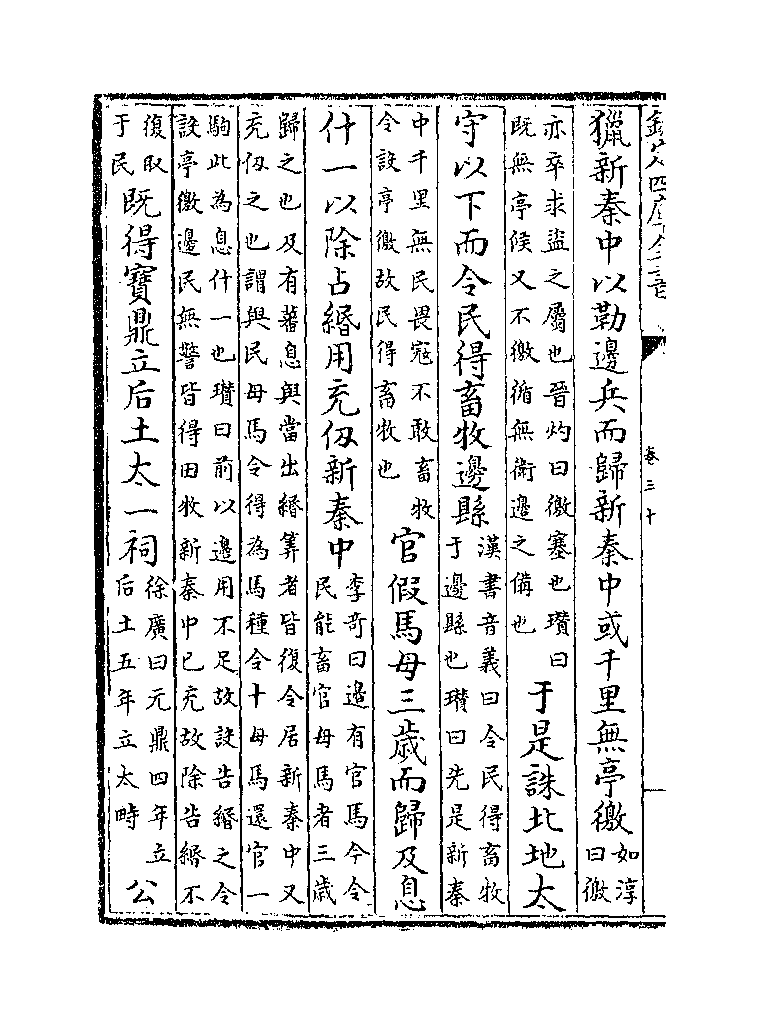 欽定四庫全書
卷三十
獵新秦中以勒邊兵而歸新秦中或千里無亭徼
如淳
曰徼
亦卒求盜之屬也晉灼曰徼塞也瓉曰
既無亭候又不徼循無衞邊之備也
于是誅北地太
守以下而令民得畜牧邊縣
漢書音義曰令民得畜牧
于邊縣也瓉曰先是新秦
中千里無民畏冦不敢畜牧
令設亭徼故民得畜牧也
官假馬母三歲而歸及息
什一以除占緡用充仭新秦中
李竒曰邊有官馬今令
民能畜官母馬者三歲
歸之也及有蕃息與當出緡筭者皆復令居新秦中又
充仭之也謂與民母馬令得為馬種令十母馬還官一
駒此為息什一也瓉曰前以邊用不足故設告緡之令
設亭徼邊民無警皆得田牧新秦中已充故除告緡不
復取
于民
既得寶鼎立后土太一祠
徐廣曰元鼎四年立
后土五年立太畤
公